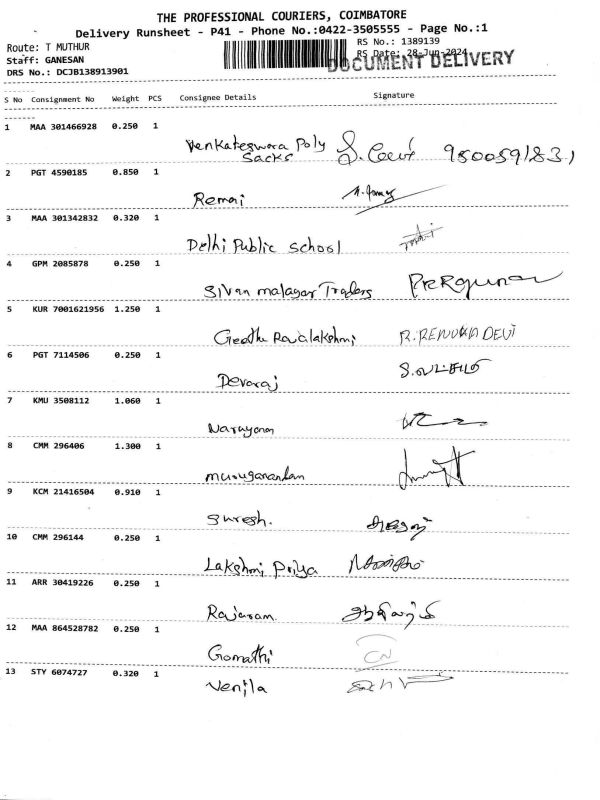 THE PROFESSIONAL COURIERS, COIMBATORE
Delivery Runsheet - P41 - Phone No.:0422-3505555 - Page No.:1
Route: T MUTHUR
RS No.: 1389139
Staff: GANESAN
RS Date: 28-Jun-2024
DOCUMENT DELIVERY
DRS No.: DCJB138913901
S No Consignment No Weight PCS Consignee Details Signature
1 MAA 301466928 0.250 1
Venkateswara Poly
Sacks
2 PGT 4590185 0.850 1
Remai
3 MAA 301342832 0.320 1
Delhi Public School
4 GPM 2085878 0.250 1
Sivan malagar Traders
5 KUR 7001621956 1.250 1
Geetha Rajalakshmi R.RENUKA DEVI
6 PGT 7114506 0.250 1
Devaraj
7 KMU 3508112 1.060 1
Narayanan
8 CMM 296406 1.300 1
murugananadam
9 KCM 21416504 0.910 1
Suresh.
10 CMM 296144 0.250 1
Lakshmi Priya
11 ARR 30419226 0.250 1
Rajaram
12 MAA 864528782 0.250 1
Gomathi
13 STY 6074727 0.320 1
Venjla